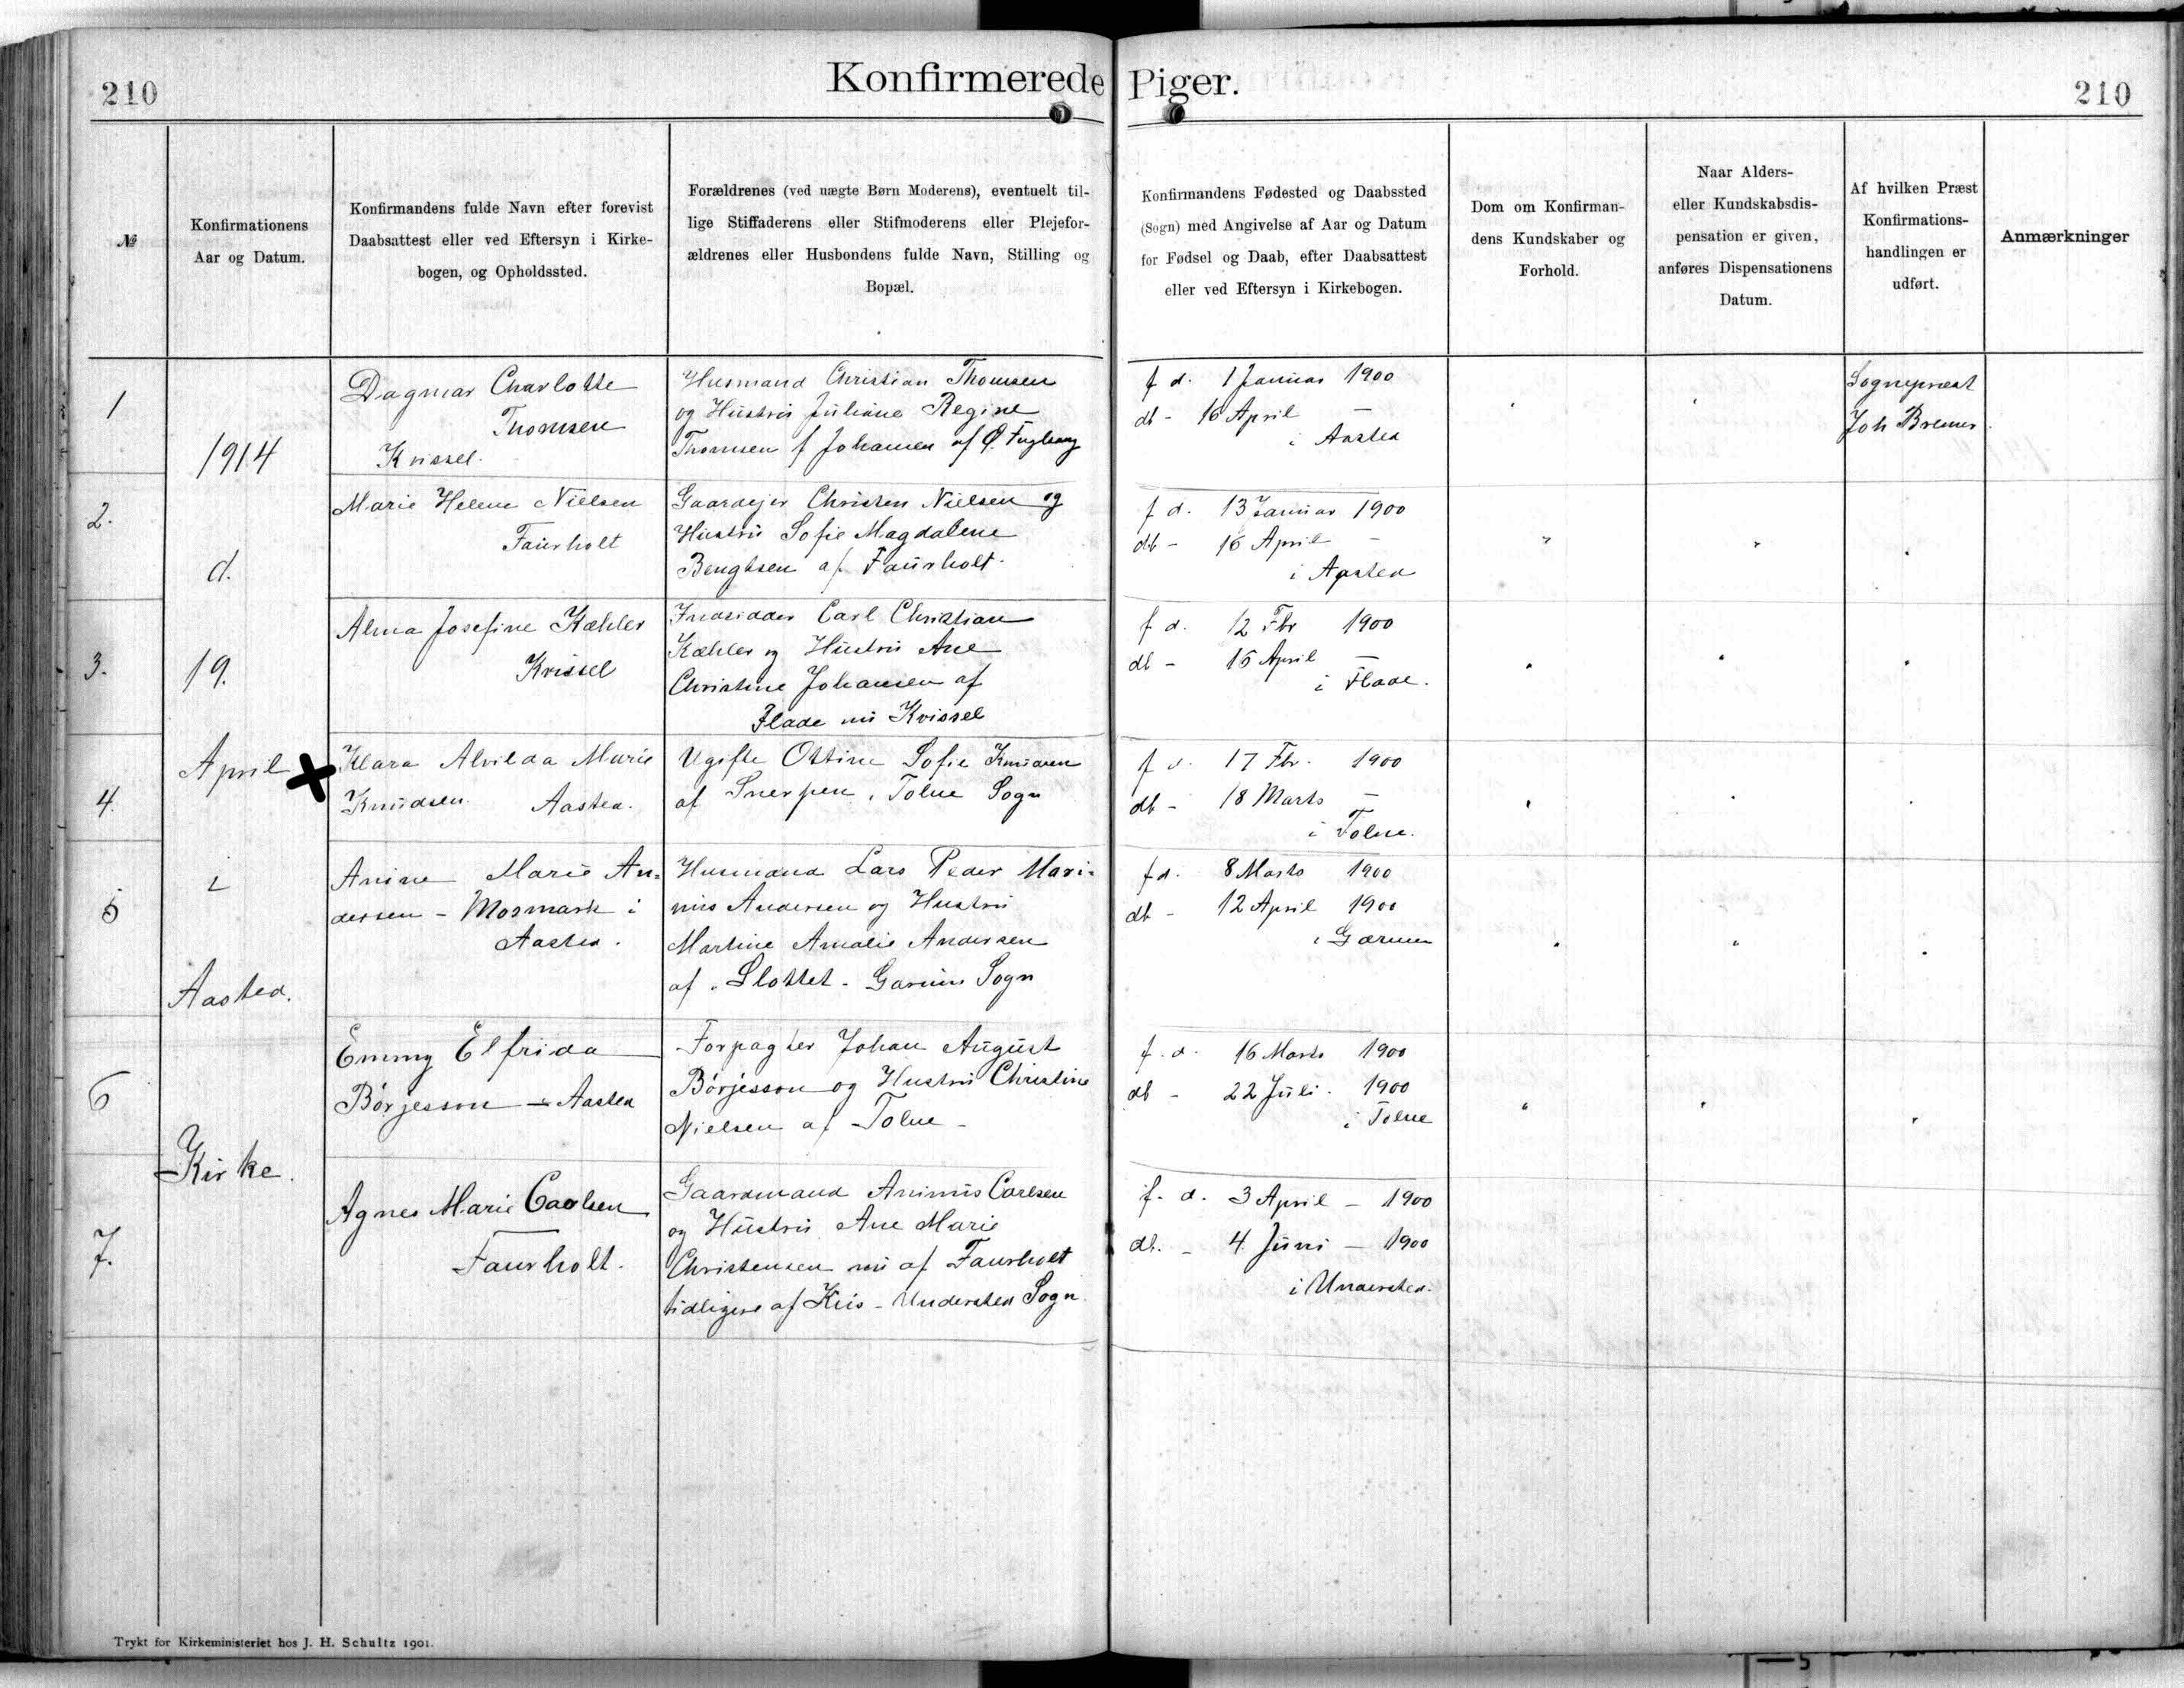 210
Konfirmerede Piger.
210
№
Konfirmationens
Aar og Datum.
Konfirmandens fulde Navn efter forevist
Daabsattest eller ved Eftersyn i Kirke-
bogen, og Opholdssted.
Forældrenes (ved uægte Børn Moderens), eventuelt til-
lige Stiffaderens eller Stifmoderens eller Plejefor-
ældrenes eller Husbondens fulde Navn, Stilling og
Bopæl.
Konfirmandens Fødested og Daabssted
(Sogn) med Angivelse af Aar og Datum
for Fødsel og Daab, efter Daabsattest
eller ved Eftersyn i Kirkebogen.
Dom om Konfirman-
dens Kundskaber og
Forhold.
Naar Alders-
eller Kundskabsdis-
pensation er given,
anføres Dispensationens
Datum.
Af hvilken Præst
Konfirmations-
handlingen er
udført.
Anmærkninger
1914
d.
19.
April
i
Aasted.
Kirke.
1
Dagmar Charlotte
Thomsen
Kvissel.
Husmand Christian Thomsen
og Hustru Juliane Regine
Thomsen f Johansen af Ø.
f d. 1 Januar 1900
db - 16 April —
i Aasted
Sognepræst
Joh Bremer.
2.
Marie Helene Nielsen
Faurholt
Gaardejer Christen Nielsen og
Hustru Sofie Magdalene
Bengtsen af Faurholt.
f d. 13 Januar 1900
db - 16 April -
i Aasted
3.
Alma Josefine Kæhler
Kvissel
Indsidder Carl Christian
Kæhler og Hustru Ane
Christine Johansen af
Flade nu Kvissel
f d. 12 Fbr 1900
db - 15 April —
i Flade.
4.
Klara Alvilda Marie
Knudsen Aasted.
Ugifte Ottine Sofie Knudsen
af Snerpen, Tolne Sogn
f d. 17 Fbr. 1900
db - 18 Marts —
i Tolne.
5
Anine Marie An=
dersen - Mosmark i
Aasted.
Husmand Lars Peder Mari=
nus Andersen og Hustru
Martine Amalie Andersen
af "Slottet" Gærum Sogn
fd. 8 Marts 1900
db - 12 April 1900
i Gærum
6
Emmy Elfrida
Börjesson - Aasted
Forpagter Johan August
Börjesson og Hustru Christine
Nielsen af Tolne -
f. d. 16 Marts 1900
db - 22 Juli. 1900
i Tolne
7.
Agnes Marie Carlsen
Faurholt.
Gaardmand Animus Carlsen
og Hustru Ane Marie
Christensen nu af Faurholt
tidligere af - Understed Sogn.
f. d. 3 April - 1900
db. - 4. Juni - 1900
i Understed.
Trykt for Kirkeministeriet hos J. H. Schultz 1901.
5